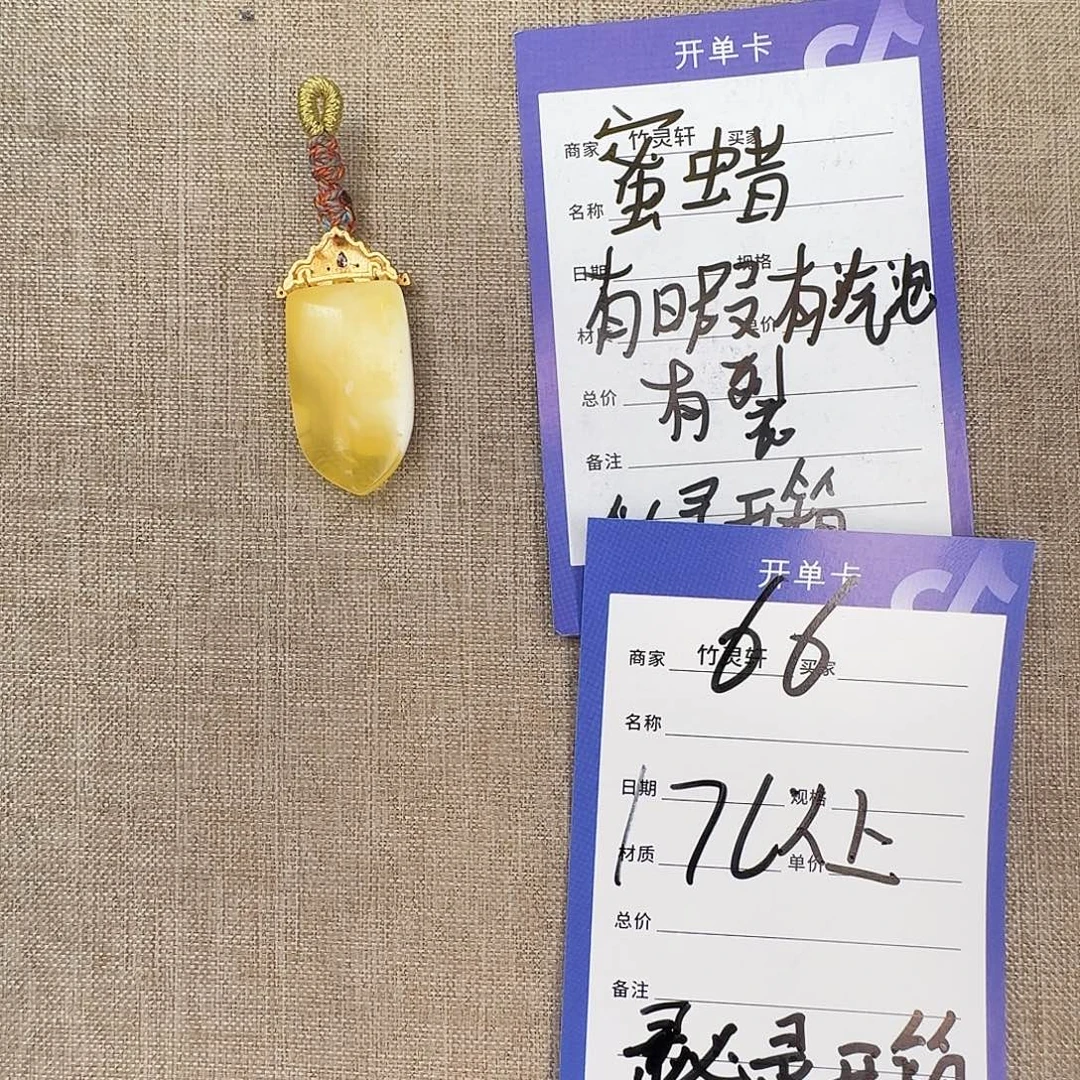 开单卡
商家 竹灵轩 买家
蜜虫蜡
名称
日期 规格
有日殳有汽泡
材 单价
有裂
总价
备注
开箱
开单卡
66
商家 竹灵轩 买家
名称
日期 规格
材质 单价
总价
备注
录开箱